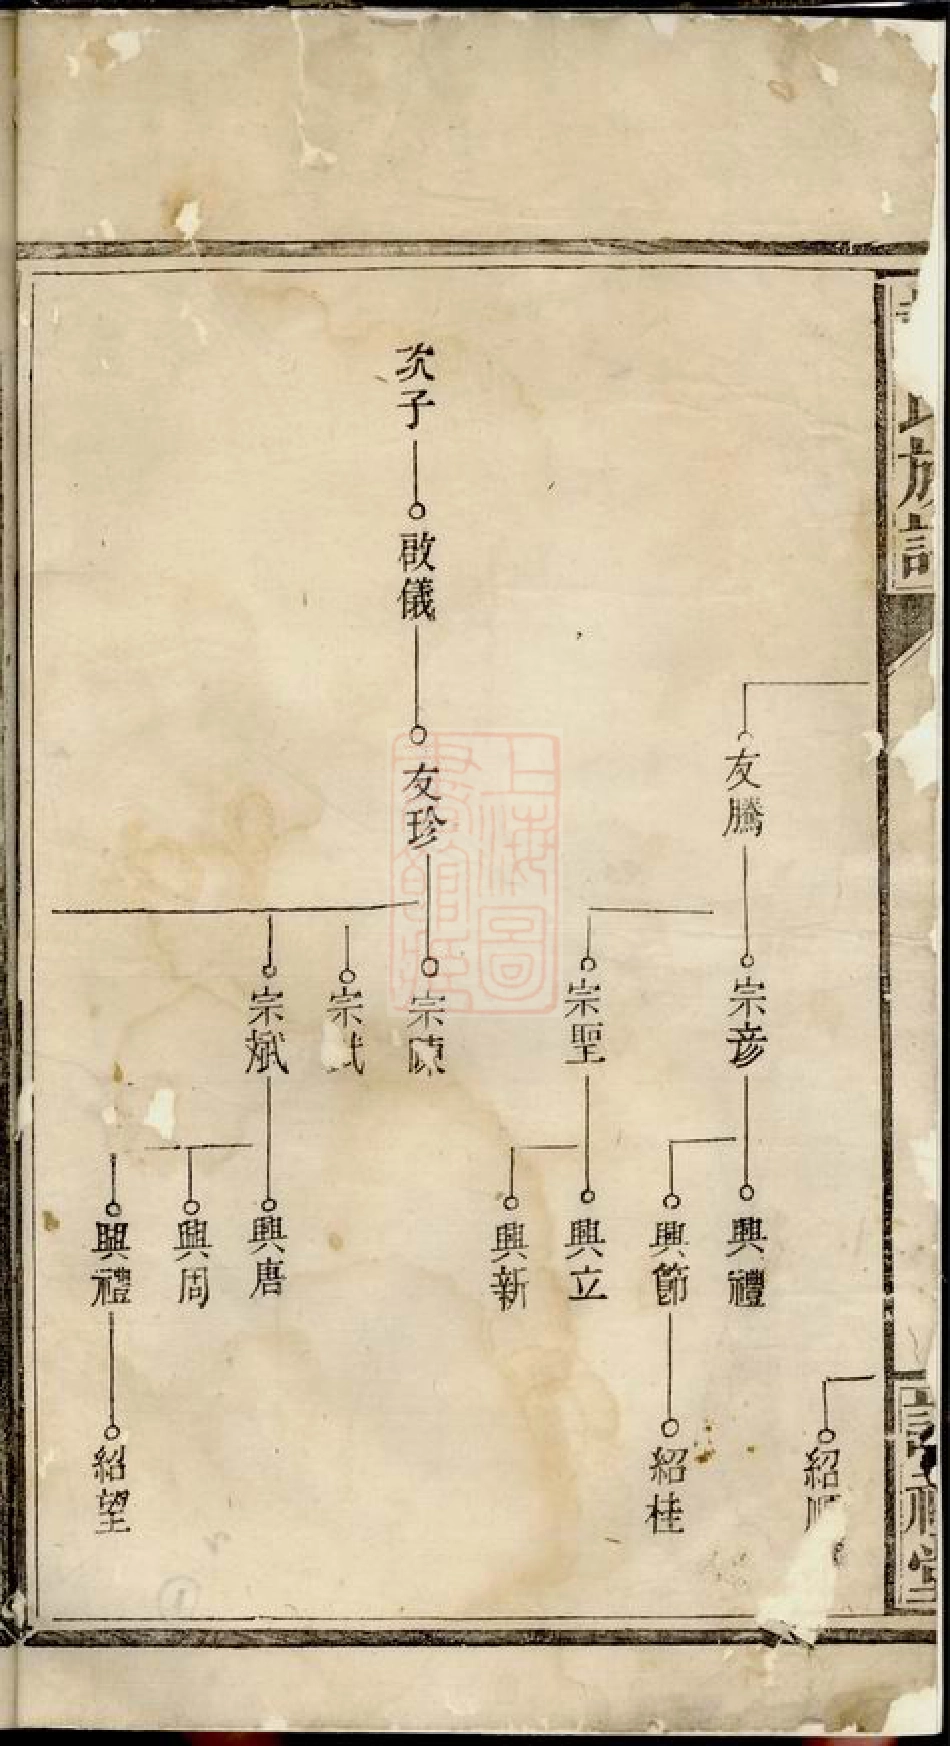 氏族譜
友騰
宗彦
興禮
興節
紹桂
宗聖
興立
興新
紹
次子
啟儀
友珍
宗陳
宗
宗斌
興唐
興周
興禮
紹望
上海圖書館藏
堂